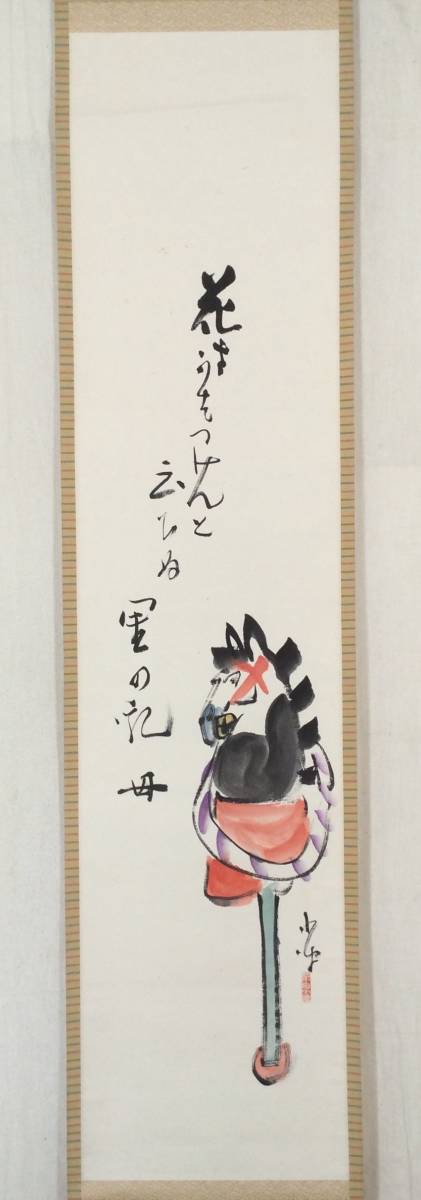 花もつけんと
云ひぬ
里の乳母
小波